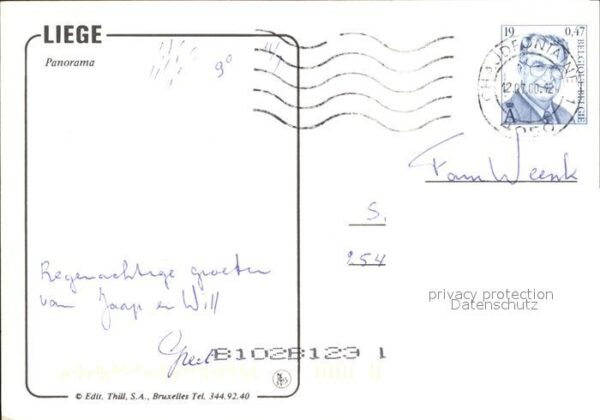 LIEGE
Panorama
9°
19 0,47
BELGIQUE - BELGIE
CHAUDFONTAINE 1
12.07.00.-12
A A
Fam Weenk
S.
254
privacy protection
Datenschutz
Regenachtige groeten
van Jaap en Will
B102B123 1
© Edit. Thill, S.A., Bruxelles Tel. 344.92.40